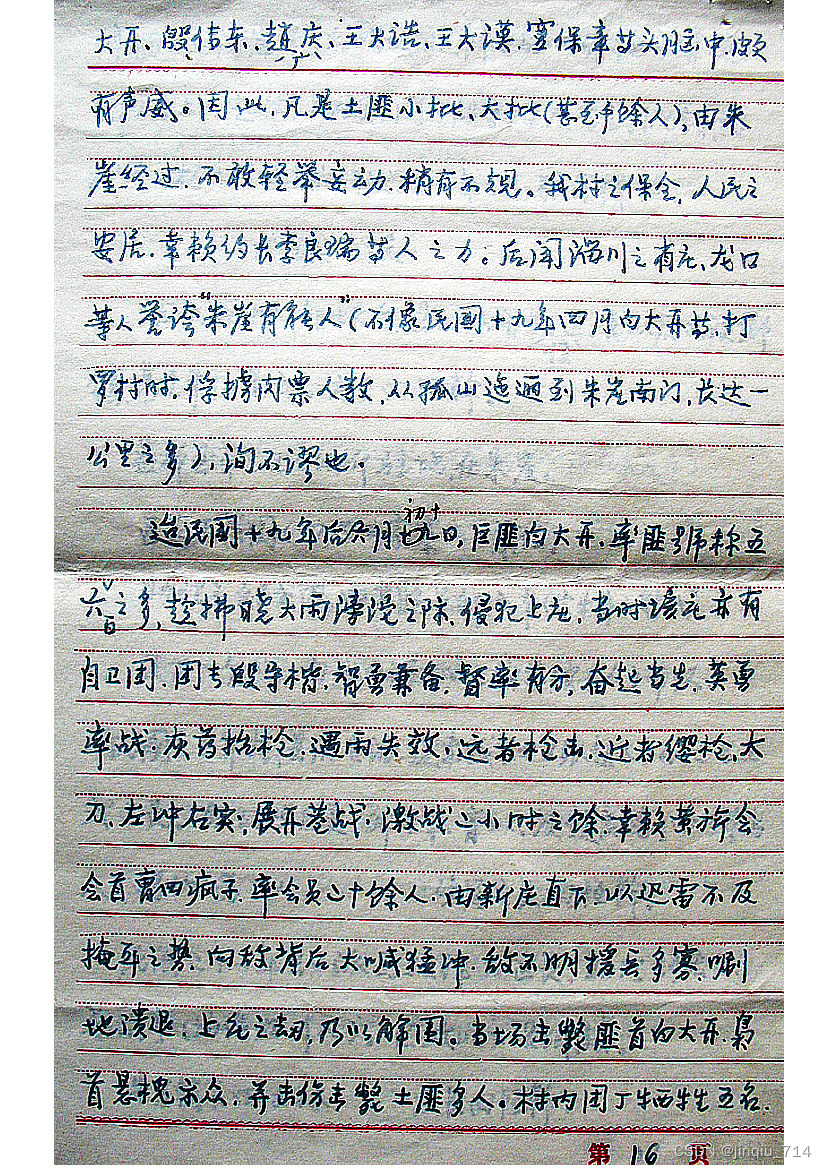 大开、殷传东、赵庆、王大浩、王大谟、窦保章等头脑中，颇
有声威。因此，凡是土匪小批、大批（甚至千馀人），由朱
崖经过，不敢轻举妄动，稍有不规。我村之保全，人民之
安居，幸赖约长李良瑞等人之力。后闻淄川之有庄、龙口
等人誉谤“朱崖有能人”（不像民国十九年四月向大开等，打
罗村时，俘掳肉票人数，从孤山迤逦到朱崖南门，长达一
公里之多），洵不谬也。
迨民国十九年后六月初十日，巨匪向大开，率匪号称五
六百之多，趁拂晓大雨滂沱之际，侵犯上庄，当时该庄亦有
自卫团，团长段学楷，智勇兼备，督率有方，奋起当先，英勇
率战。灰药抬枪，遇雨失效，远者枪击，近者缨枪、大
刀，左冲右突，展开巷战。激战二小时之馀，幸赖黄旗会
会首 四疯子，率会员二十馀人，由新庄直下，以迅雷不及
掩耳之势，向敌背后大喊猛冲，敌不明援兵多寡，唰
地溃退，上庄之劫，乃以解围。当场击毙匪首向大开，枭
首悬槐示众，并击伤击毙土匪多人。本村内团丁牺牲五名，
第 16 页
CSDN @jinqiu_714